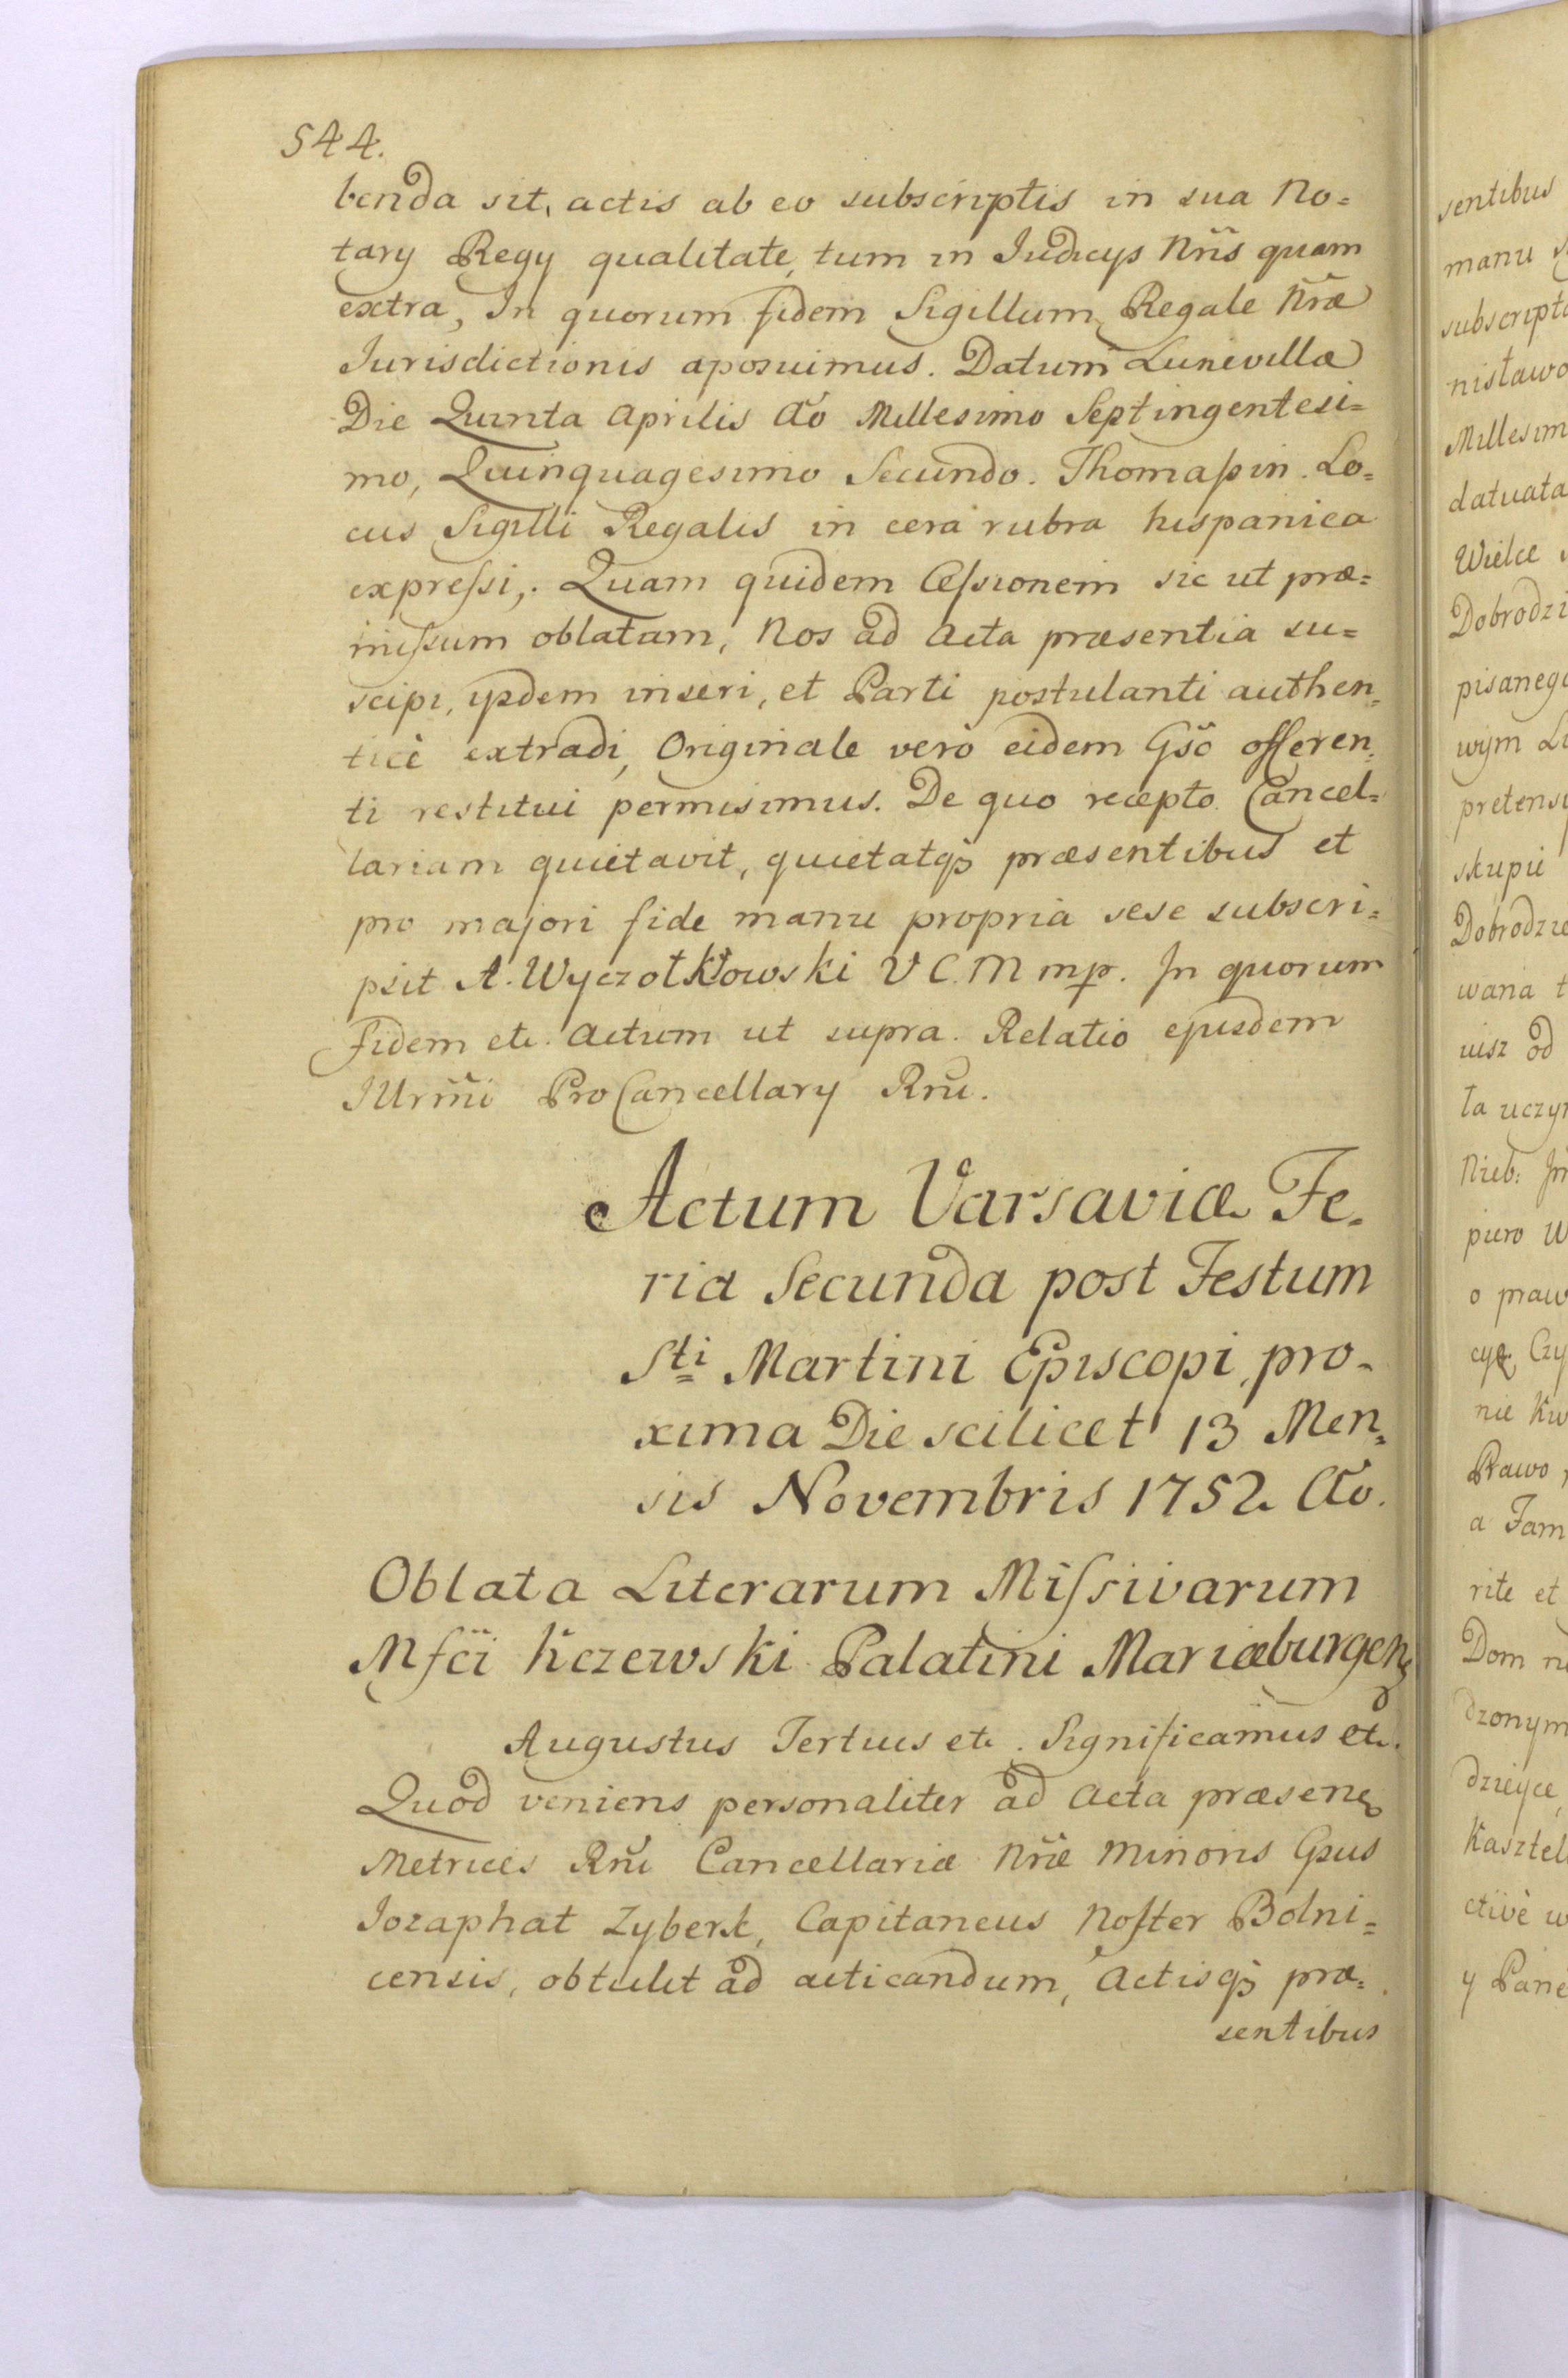 544.
benda sit, actis ab eo subscriptis in sua No=
tary Regy qualitate, tum in Judicys Nr̃is quam
extra, In quorum fidem Sigillum Regale Nr̃æ
Jurisdictionis aposuimus. Datum Lunevillæ
Die Quinta Aprilis Aõ Millesimo Septingentesi=
mo, Quinquagesimo Secundo. Thomaſsin. Lo=
cus Sigilli Regalis in cera rubra hispanica
expreſsi,. Quam quidem Ceſsionem sic ut præ=
miſsum oblatam, Nos ad Acta præsentia su=
scipi, ysdem inseri, et Parti postulanti authen=
ticè extradi, Originale verò eidem Gsõ offeren=
ti restitui permisimus. De quo recepto Cancel=
lariam quietavit, quietatqꝫ præsentibus et
pro majori fide manu propria sese subscri=
psit A. Wyczołkowski V C. M mp. In quorum
Fidem etc. Actum ut supra. Relatio ejusdem
Illrm̃i ProCancellary Rñi.
Actum Varsaviæ Fe=
ria Secunda post Festum
Sti Martini Episcopi, pro=
xima Die scilicet 13 Men=
sis Novembris 1752. Aõ.
Oblata Literarum Miſsivarum
Mfci Kczewski Palatini Mariæburgen
Augustus Tertius etc. Significamus etc.
Quod veniens personaliter ad Acta præsen
Metrices Rñi Cancellariæ Nr̃æ Minoris Gsus
Jozaphat Zyberk, Capitaneus Noſter Bolni=
censis, obtulit ad acticandum, Actisqꝫ præ=
sentibus
sentibus
manu
subscript
nisławo
Millesim
datuata
Wielce
Dobrodzi
pisanego
wym
pretens
skupie
Dobrodzie
wana
uisz od
ła uczyn
Nieb:
piero
o praw
cyę Czy
nie Kw
Prawo
a Fam
rite et
Dom
dzonym
dzieyce
Kasztel
ctivè w
y Pane